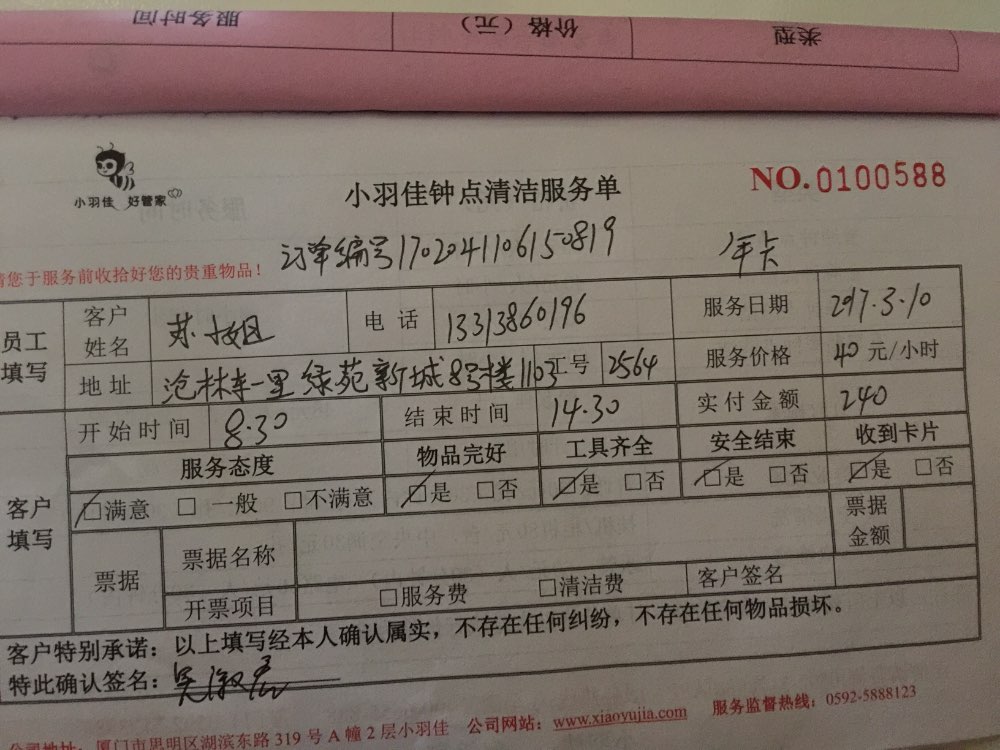 服务时间 价格（元） 类型
小羽佳 好管家
小羽佳钟点清洁服务单
NO.0100588
订单编号1702041106150819 年卡
请您于服务前收拾好您的贵重物品！
员工填写 客户姓名 苏小姐 电话 13313860196 服务日期 2017.3.10
地址 沧林东一里绿苑新城8号楼1103 工号 2564 服务价格 40 元/小时
客户填写 开始时间 8.30 结束时间 14.30 实付金额 240
服务态度 物品完好 工具齐全 安全结束 收到卡片
☑满意 □一般 □不满意 ☑是 □否 ☑是 □否 ☑是 □否 ☑是 □否
票据 票据名称 票据金额
开票项目 □服务费 □清洁费 客户签名
客户特别承诺：以上填写经本人确认属实，不存在任何纠纷，不存在任何物品损坏。
特此确认签名：吴淑
公司地址：厦门市思明区湖滨东路 319 号 A 幢 2 层小羽佳 公司网站：www.xiaoyujia.com 服务监督热线：0592-5888123